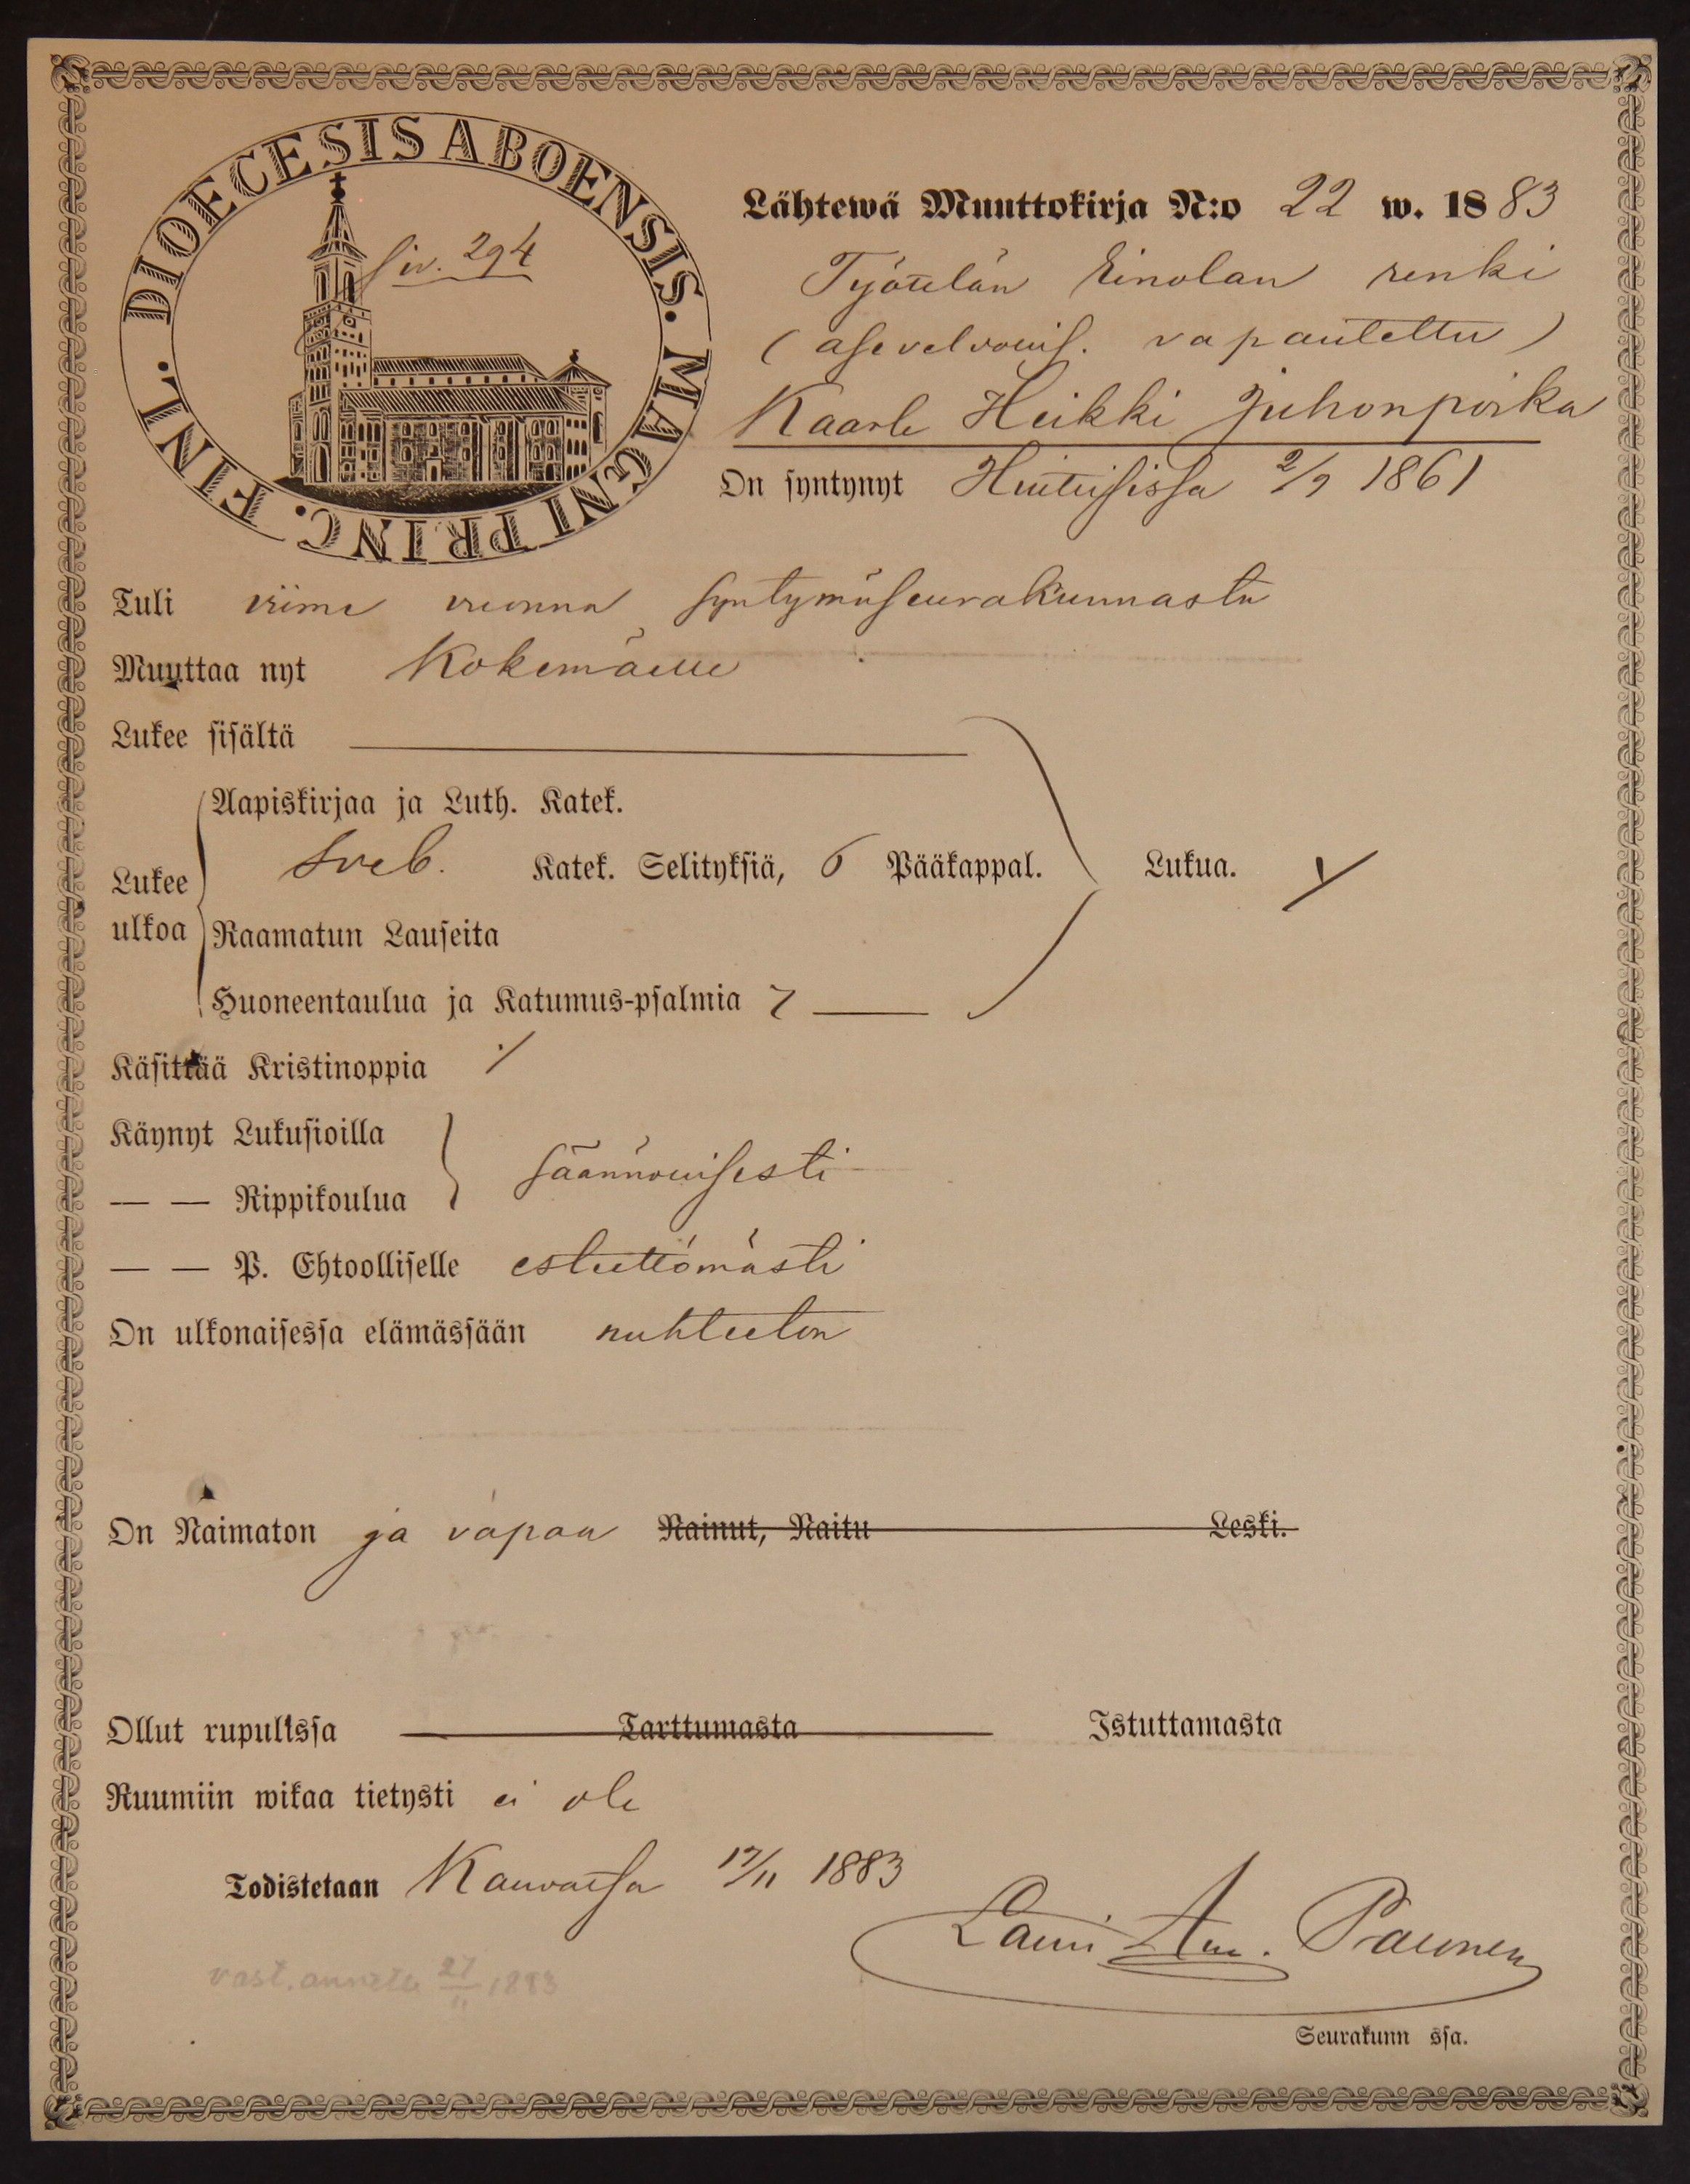 DIOECESIS ABOENSIS. MAGNI PRINC. FINL.
Siv. 294
Lähtewä Muuttokirja N:o 22 w. 1883
Työtilän Einolan renki
(asevelvollis. vapautettu)
Kaarle Heikki Juhonpoika
On syntynyt Huittisissa 2/9 1861
Tuli viime vuonna syntymäseurakunnasta
Muuttaa nyt Kokemäelle
Lukee sisältä
Aapiskirjaa ja Luth. Katek.
Lukee ulkoa Sveb. Katek. Selityksiä, 6 Pääkappal. Lukua.
Raamatun Lauseita
Huoneentaulua ja Katumus-psalmia 7
Käsittää Kristinoppia
Käynyt Lukusioilla
— — Rippikoulua säännöllisesti
— — P. Ehtoolliselle esteettömästi
On ulkonaisessa elämässään nuhteeton
On Naimaton ja vapaa Nainut, Naitu Leski.
Ollut rupulissa Tarttumasta Istuttamasta
Ruumiin wikaa tietysti ei ole
Todistetaan Kauvatsa 17/11 1883
Lauri Paunen
vast. annettu 21/11 1883
Seurakunn ssa.